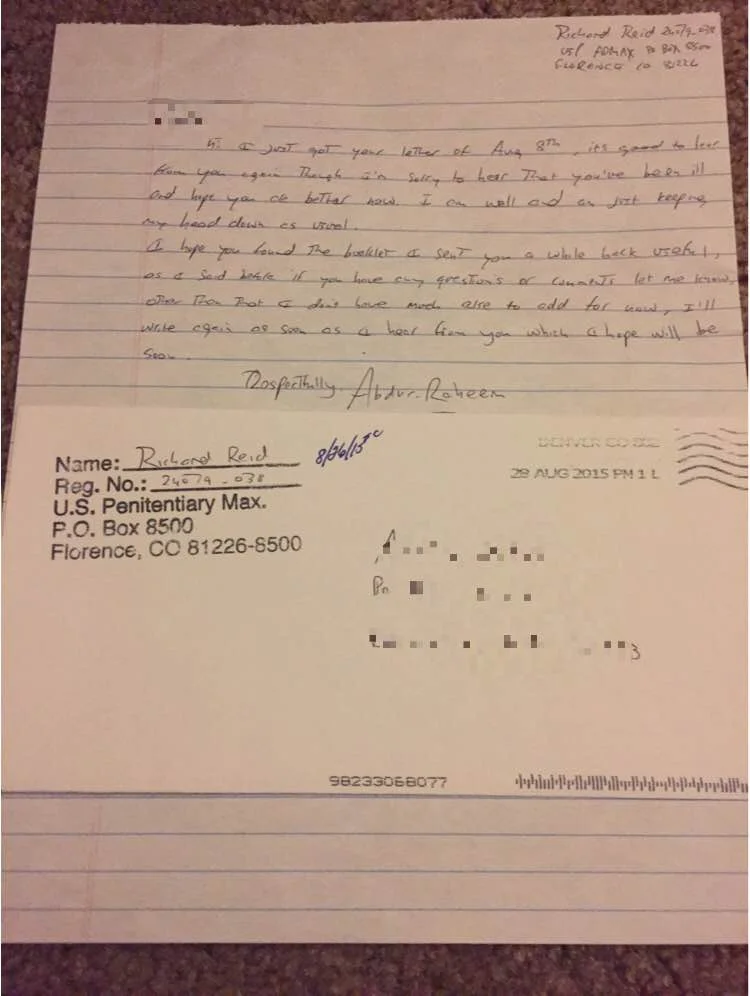 Richard Reid 24079-038
USP ADMAX PO BOX 8500
FLORENCE CO 81226
Hi I just got your letter of Aug 8th, it's good to hear
from you again Though i'm sorry to hear That you've been ill
and hope you are better now. I am well and am just keeping
my head down as usual.
I hope you found The booklet I sent you a while back useful,
as I said before if you have any questions or comments let me know,
other Than That I don't have much else to add for now, I'll
write again as soon as I hear from you which I hope will be
soon.
Respectfully. Abdur-Raheem
Name: Richard Reid
8/26/15
Reg. No.: 24079-038
U.S. Penitentiary Max.
P.O. Box 8500
Florence, CO 81226-8500
DENVER CO 802
28 AUG 2015 PM 1 L
3
98233068077